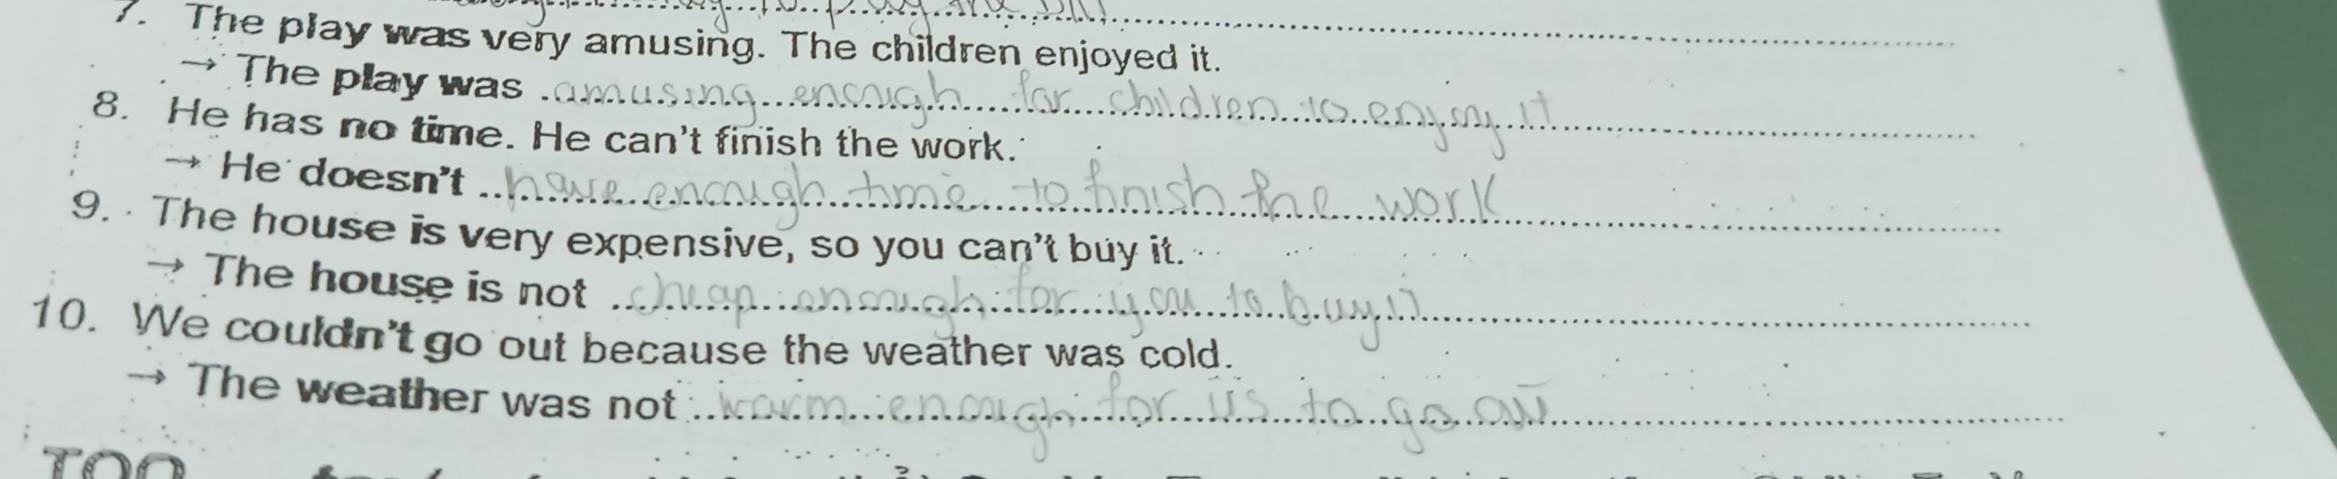 7. The play was very amusing. The children enjoyed it.
→ The play was amusing enough for children to enjoy it
8. He has no time. He can't finish the work.
→ He doesn't have enough time to finish the work
9. The house is very expensive, so you can't buy it.
→ The house is not cheap enough for you to buy it
10. We couldn't go out because the weather was cold.
→ The weather was not warm enough for us to go out
TOO